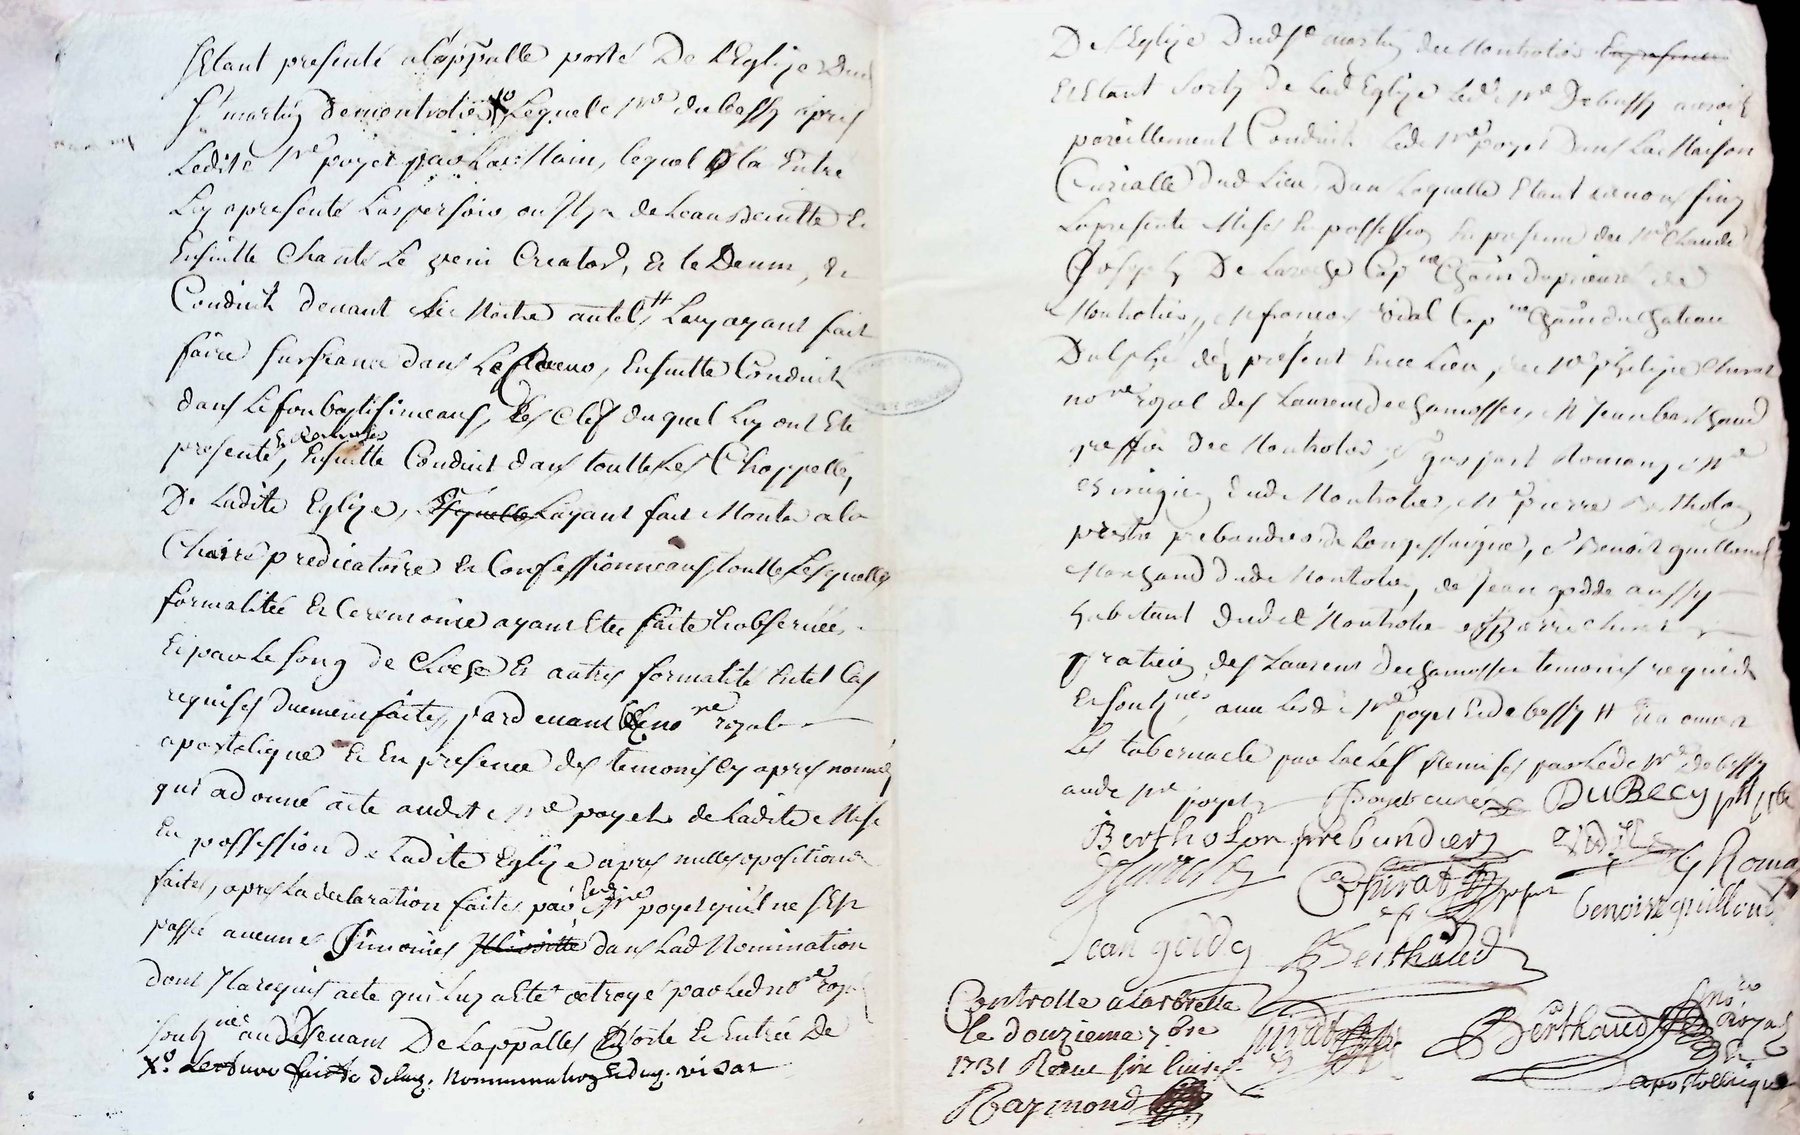 s'Etant presenté alappalle porté De L'Eglize Dud
St martin Demontrotier Xo Lequel Sr dubessy apres
Ledite Sre poyet par La Main, lequel a la Entré
Luy apresenté Laspersoir ou Il ya de Leau Benitte Et
Ensuitte Chanté Le veni Creator, Et te Deum, Et
Conduit devant Le Maitre autel Luy ayant fait
faire sur seance dans Le Coeur, Ensuitte Conduit
dans Le fon baptismeaux, Les Clef duquel Luy ont Ete
presenté, Ensuitte Conduit dans toutte Les Chappelle,
De Ladite Eglize, Layant fait Monter a la
Chaire predicatoire Et Confessionneaux, toutte Lesquelles
formalitée Et Ceremonie ayant Ete faite Et observée,
Et par Le son de Cloche Et autres formalité En tel Cas
requises Duement faites, pardevant no re royal
apostolique Et En presence des temoins Cy apres nommé
qui a donné acte audit Sre poyet de Ladite Mise
En possession de Ladite Eglize apres nulles opositions
faites, apres La declaration faites par Led Sre poyet qu'il ne s'Est
passé aucunes Simonies Illicitte dans Lad Nomination
dont Il a requis acte qui Luy a Eté octroyé par Led no re roya
soub né au Devant De Lappalles Porte Et Entrée De
Xo Lecture faite de Lad. Nommination Et du visa
De L'Eglize Dud St martin de Montrotier
Et Etant Sorty de Lad Eglize Led Sre Dubessy auroit
pareillement Conduit Led Sre poyet Dans La Maison
Curialle Dud Lieu, Dans Laquelle Etant avons finy
La presente Mise En possession En presence de Sre Claude
Joseph De Laroche Cap ne Chatn du prieure de
Montrotier, Mr francois vidal Cap ne Chatn du Chateau
present En ce Lieu, de Me philipe Chirat
no re royal de St Laurent de Chamosset, Mr Jean Berthaud
greffier De Montrotier, Sr gaspart Romany Me
Chirugien dud Montrotier, Mre pierre Bertholon
prestre prebandier de Longessaigne, Sr Benoist guilloud
Marchand dud Montrotier, de Jean godde aussy
habitant dudit Montrotier Chirat
praticien de St Laurent De Chamosset temoins requis
Et soub nés, avec Lesd Sre poyet Et dubessy Et a ouvert
Les tabernacle par La Clef Remises par Led Sr Dubessy
aud Sre poyet Poyet curé DuBecy ptre
Bertholon prebundier vidal
Chirat G Roma
Benoist guilloud
Jean godde Berthaud
Controlle a Larbrelle
le douzieme 7bre
1731 Receu six livres
Raymond
Chirat
Berthaud no re Royal
Et
apostollique